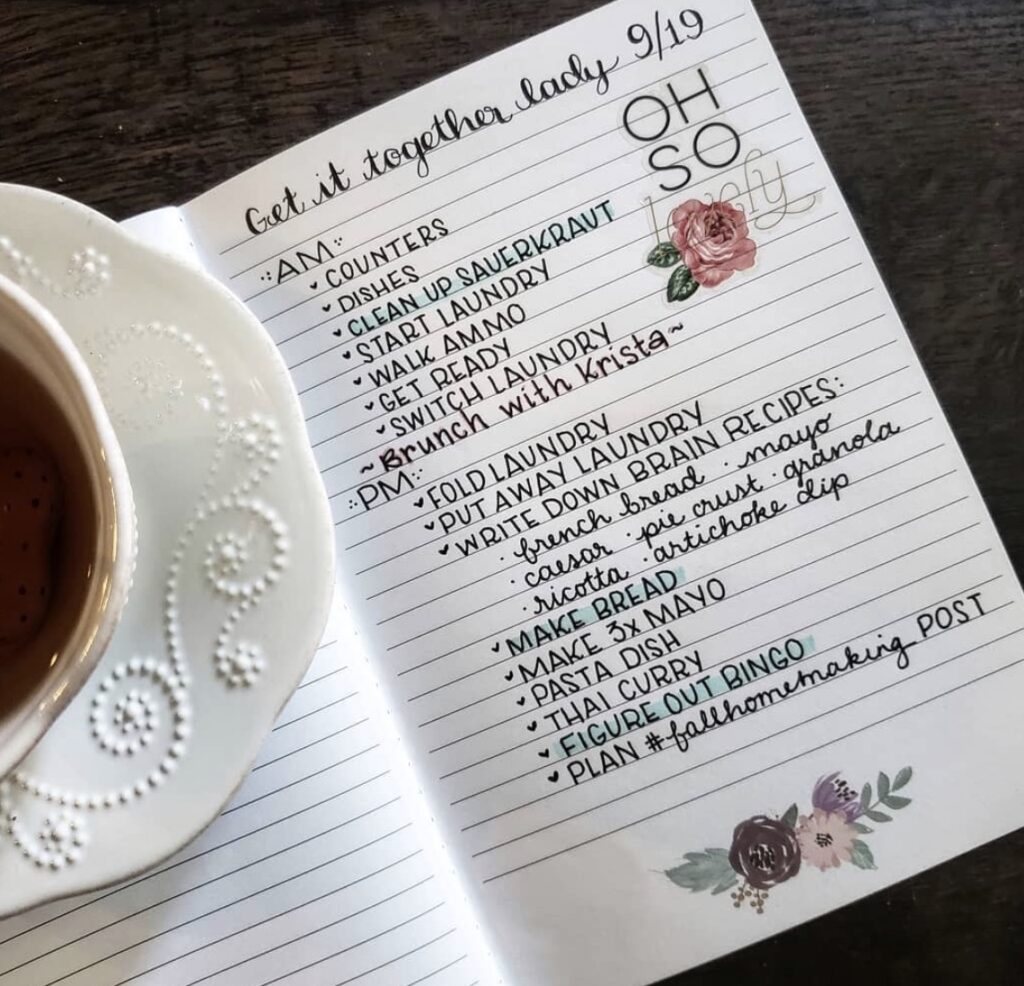 Get it together lady 9/19
OH
SO
lovely
AM
COUNTERS
DISHES
CLEAN UP SAUERKRAUT
START LAUNDRY
WALK AMMO
GET READY
SWITCH LAUNDRY
~Brunch with Krista~
PM
FOLD LAUNDRY
PUT AWAY LAUNDRY
WRITE DOWN BRAIN RECIPES:
· french bread · mayo
· caesar · pie crust · granola
· ricotta · artichoke dip
MAKE BREAD
MAKE 3x MAYO
PASTA DISH
THAI CURRY
FIGURE OUT BINGO
PLAN #fallhomemaking POST